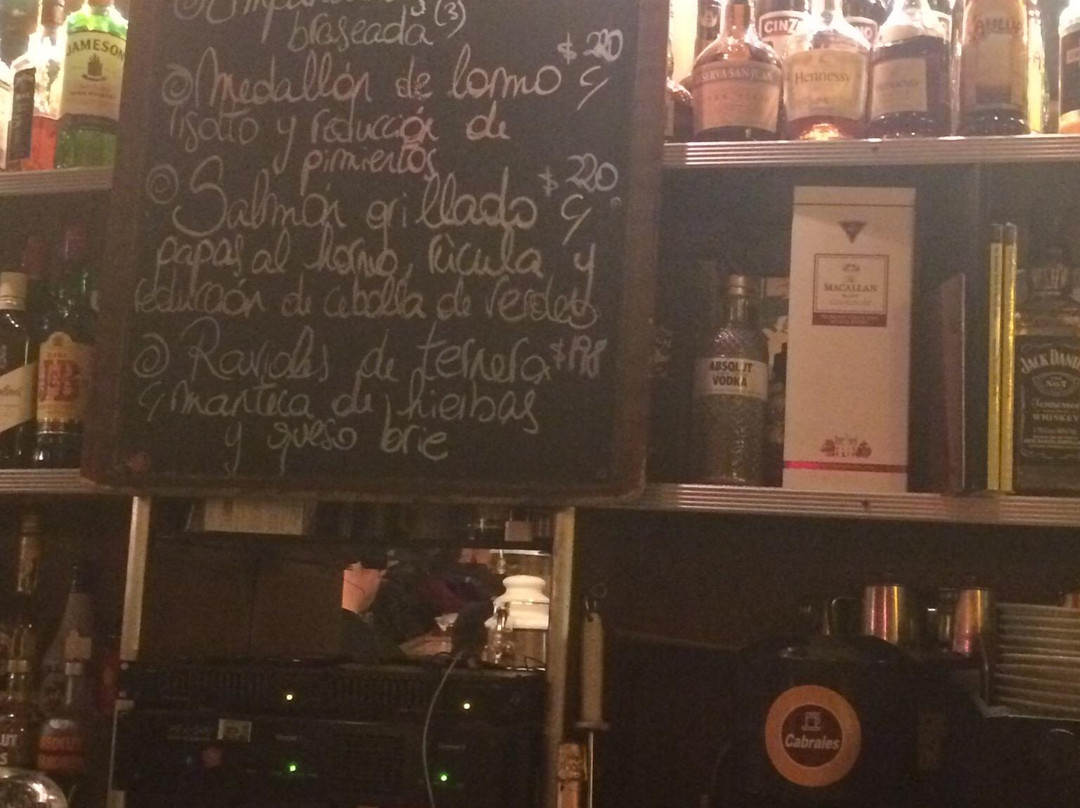 braseada (3)
Medallón de lomo
c/ risotto y reducción de
pimientos
Salmón grillado $220
c/ papas al horno, rúcula y
reducción de cebolla de verdeo
Raviolis de ternera $198
c/ manteca de hierbas
y queso brie
JAMESON
J&B
CINZ
Hennessy
MACALLAN
ABSOLUT
VODKA
JACK DANI
Tennessee
WHISKEY
Cabrales